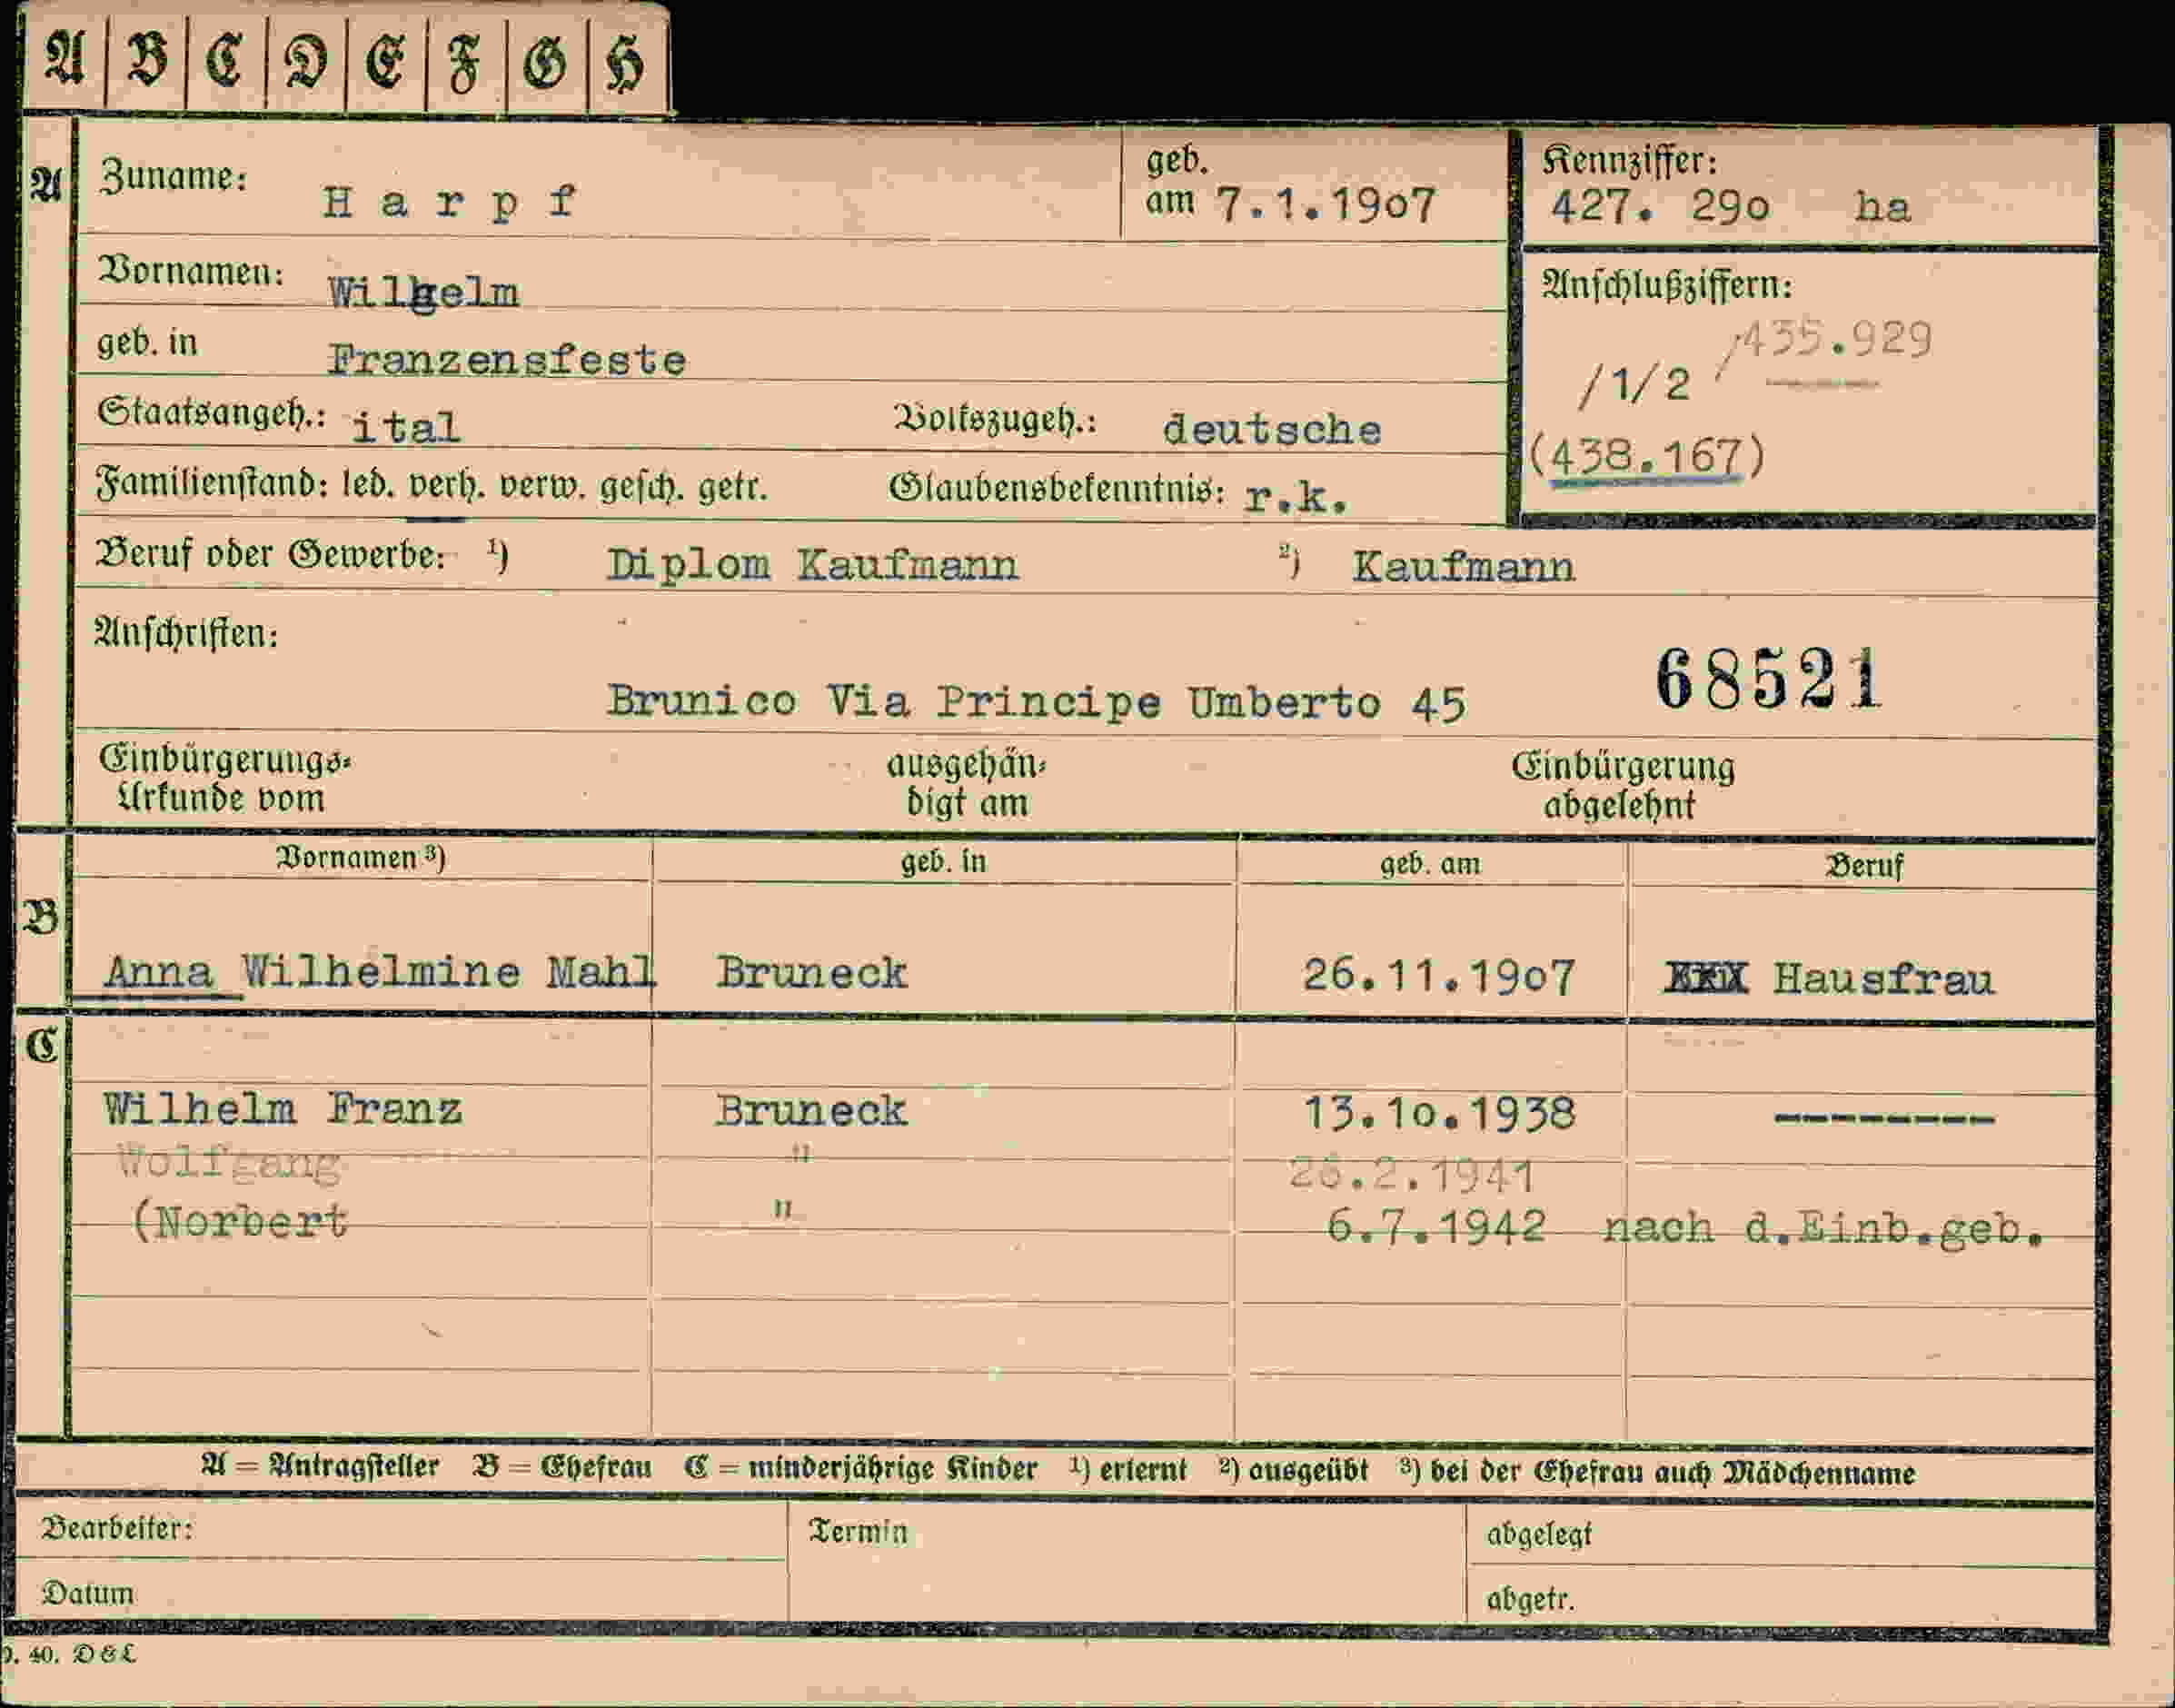 A B C D E F G H
A
Zuname: Harpf
geb. am 7.1.19o7
Kennziffer:
427. 29o ha
Vornamen: Wilhelm
Anschlußziffern:
/1/2 /435.929
(438.167)
geb. in Franzensfeste
Staatsangeh.: ital Volkszugeh.: deutsche
Familienstand: led. verh. verw. gesch. getr. Glaubensbekenntnis: r.k.
Beruf oder Gewerbe: ¹) Diplom Kaufmann ²) Kaufmann
Anschriften:
68521
Brunico Via Principe Umberto 45
Einbürgerungs-Urkunde vom ausgehän-digt am Einbürgerung abgelehnt
Vornamen ³) geb. in geb. am Beruf
B
Anna Wilhelmine Mahl Bruneck 26.11.19o7 Hausfrau
C
Wilhelm Franz Bruneck 13.1o.1938 --------
Wolfgang " 26.2.1941
(Norbert " 6.7.1942 nach d.Einb.geb.
A = Antragsteller B = Ehefrau C = minderjährige Kinder ¹) erlernt ²) ausgeübt ³) bei der Ehefrau auch Mädchenname
Bearbeiter: Termin abgelegt
Datum abgetr.
40. D & L